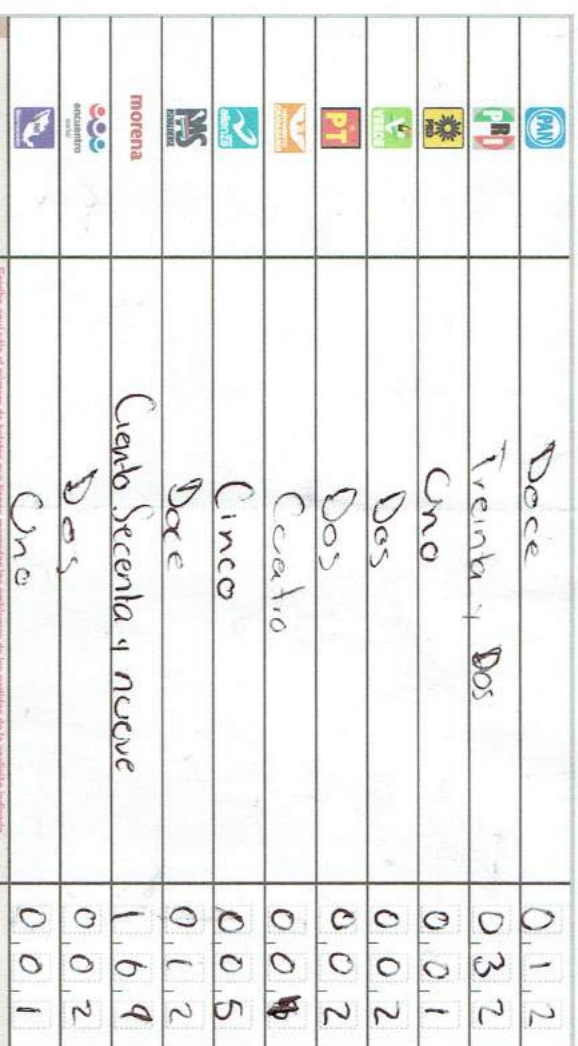 PAN Doce 0 1 2
PRI Treinta y Dos 0 3 2
PRD Uno 0 0 1
VERDE Dos 0 0 2
PT Dos 0 0 2
Cuatro 0 0 4
alianza Cinco 0 0 5
PAS Doce 0 1 2
morena Ciento Secenta y nueve 1 6 9
encuentro social Dos 0 0 2
Uno 0 0 1